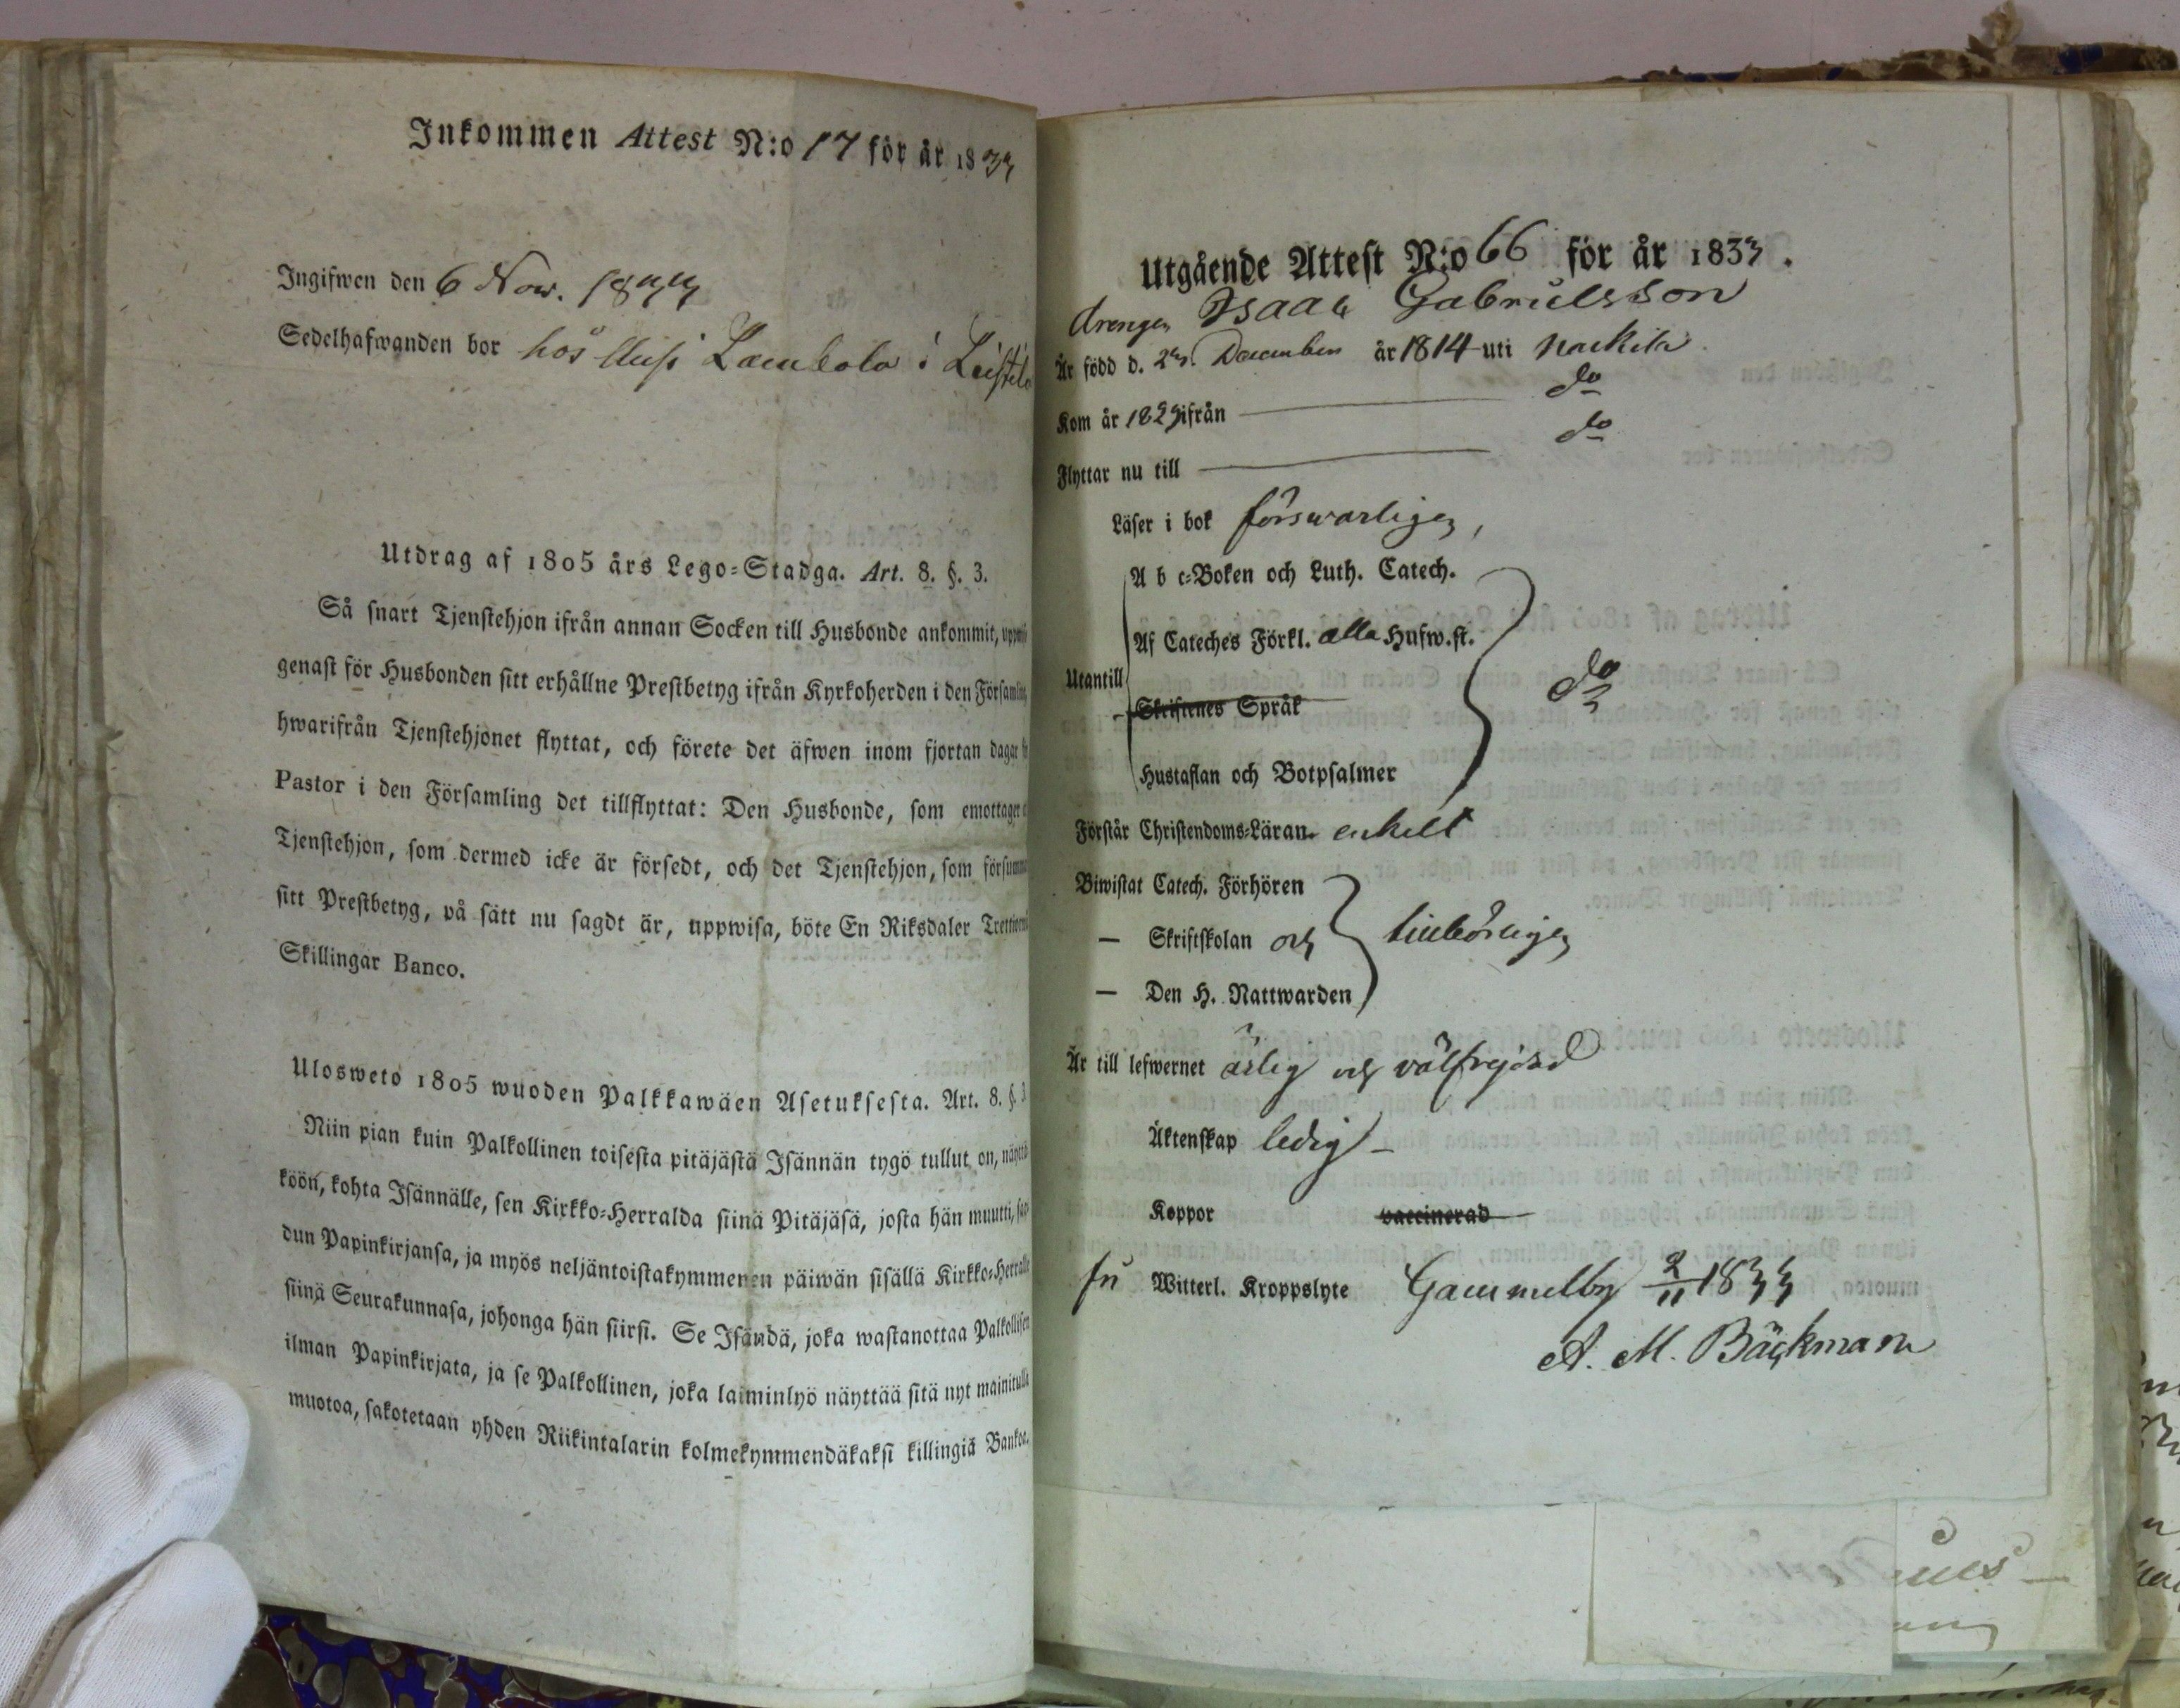 Inkommen Attest N:o 17 för år 1833
Ingifwen den 6 Nov. 1833
Sedelhafwanden bor hos i
Utdrag af 1805 års Lego-Stadga. Art. 8. §. 3.
Så snart Tjenstehjon ifrån annan Socken till Husbonde ankommit,
genast för Husbonden sitt erhållne Prestbetyg ifrån Kyrkoherden i den
hwarifrån Tjenstehjonet flyttat, och förete det äfwen inom fjortan dagar
Pastor i den Församling det tillflyttat: Den Husbonde, som emottager
Tjenstehjon, som dermed icke är försedt, och det Tjenstehjon, som
sitt Prestbetyg, på sätt nu sagdt är, uppwisa, böte En Riksdaler
Skillingar Banco.
Ulosweto 1805 wuoden Palkkawäen Asetuksesta. Art. 8. §. 3
Niin pian kuin Palkollinen toisesta pitäjästä Isännän tygö tullut on,
köön, kohta Isännälle, sen Kirkko-Herralda siinä Pitäjäsä, josta hän muutti,
dun Papinkirjansa, ja myös neljäntoistakymmenen päiwän sisällä Kirkko-Herralle
siinä Seurakunnasa, johonga hän siirsi. Se Isändä, joka wastanottaa Palkollisen
ilman Papinkirjata, ja se Palkollinen, joka laiminlyö näyttää sitä nyt mainitulla
muotoa, sakotetaan yhden Riikintalarin kolmekymmendäkaksi killingiä Bankoa.
Utgående Attest N:o 66 för år 1833.
drengen Isaac Gabrielsson
Är född d. December år 1814 uti Nackila
Kom år 1829 ifrån do
Flyttar nu till do
Läser i bok förswarligen,
A b c-Boken och Luth. Catech.
Af Cateches Förkl. alla Hufw.st.
Utantill do
Skriftenes Språk
Hustaflan och Botpsalmer
Förstår Christendoms-Läran enkelt
Biwistat Catech. Förhören
— Skriftskolan och tillbörligen
— Den H. Nattwarden
Är till lefwernet ärlig och välfrejdad
Äktenskap ledig
Koppor vaccinerad
Witterl. Kroppslyte Gammelby 2/11 1833
A. M. Bäckman